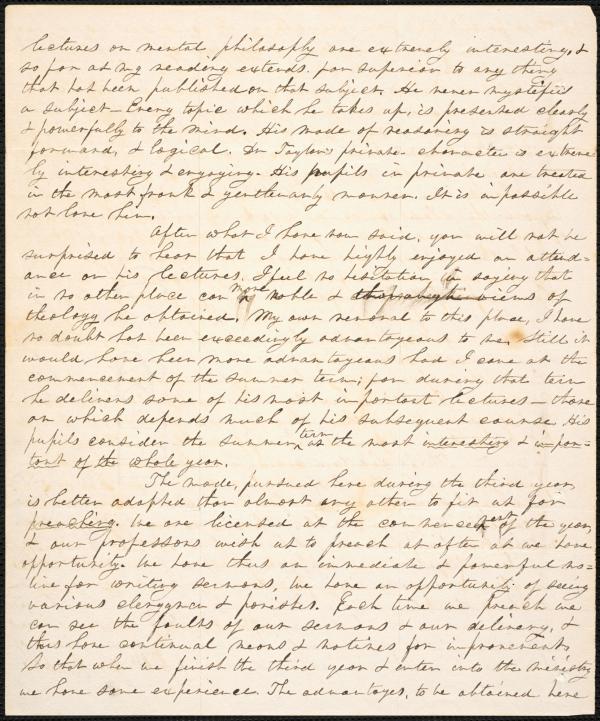 lectures on mental philosophy are extremely interesting, &
so far as my reading extends, far superior to any thing
that has been published on that subject. He never mystifies
a subject — Every topic which he takes up, is presented clearly
& powerfully to the mind. His mode of reasoning is straight
forward, & logical. Dr Taylor's private character is extreme
ly interesting & engaging. His pupils in private are treated
in the most frank & gentlemanly manner. It is impossible
not love him.
After what I have now said, you will not be
surprised to hear that I have highly enjoyed an attend-
ance on his lectures. I feel no hesitation in saying that
in no other place can more noble & thorough views of
theology be obtained. My own removal to this place, I have
no doubt has been exceedingly advantageous to me. Still it
would have been more advantageous had I came at the
commencement of the summer term; for during that term
he delivers some of his most important lectures — those
on which depends much of his subsequent course. His
pupils consider the summer term as the most interesting & impor-
tant of the whole year.
The mode, pursued here during the third year,
is better adapted than almost any other to fit us for
preaching. We are licensed at the commencement of the year,
& our professors wish us to preach as often as we have
opportunity. We have thus an immediate & powerful mo-
tive for writing sermons, We have an opportunity of seeing
various clergymen & parishes. Each time we preach we
can see the faults of our sermons & our delivery, &
thus have continual means & motives for improvement,
So that when we finish the third year & enter into the ministry
we have some experience. The advantages, to be obtained here